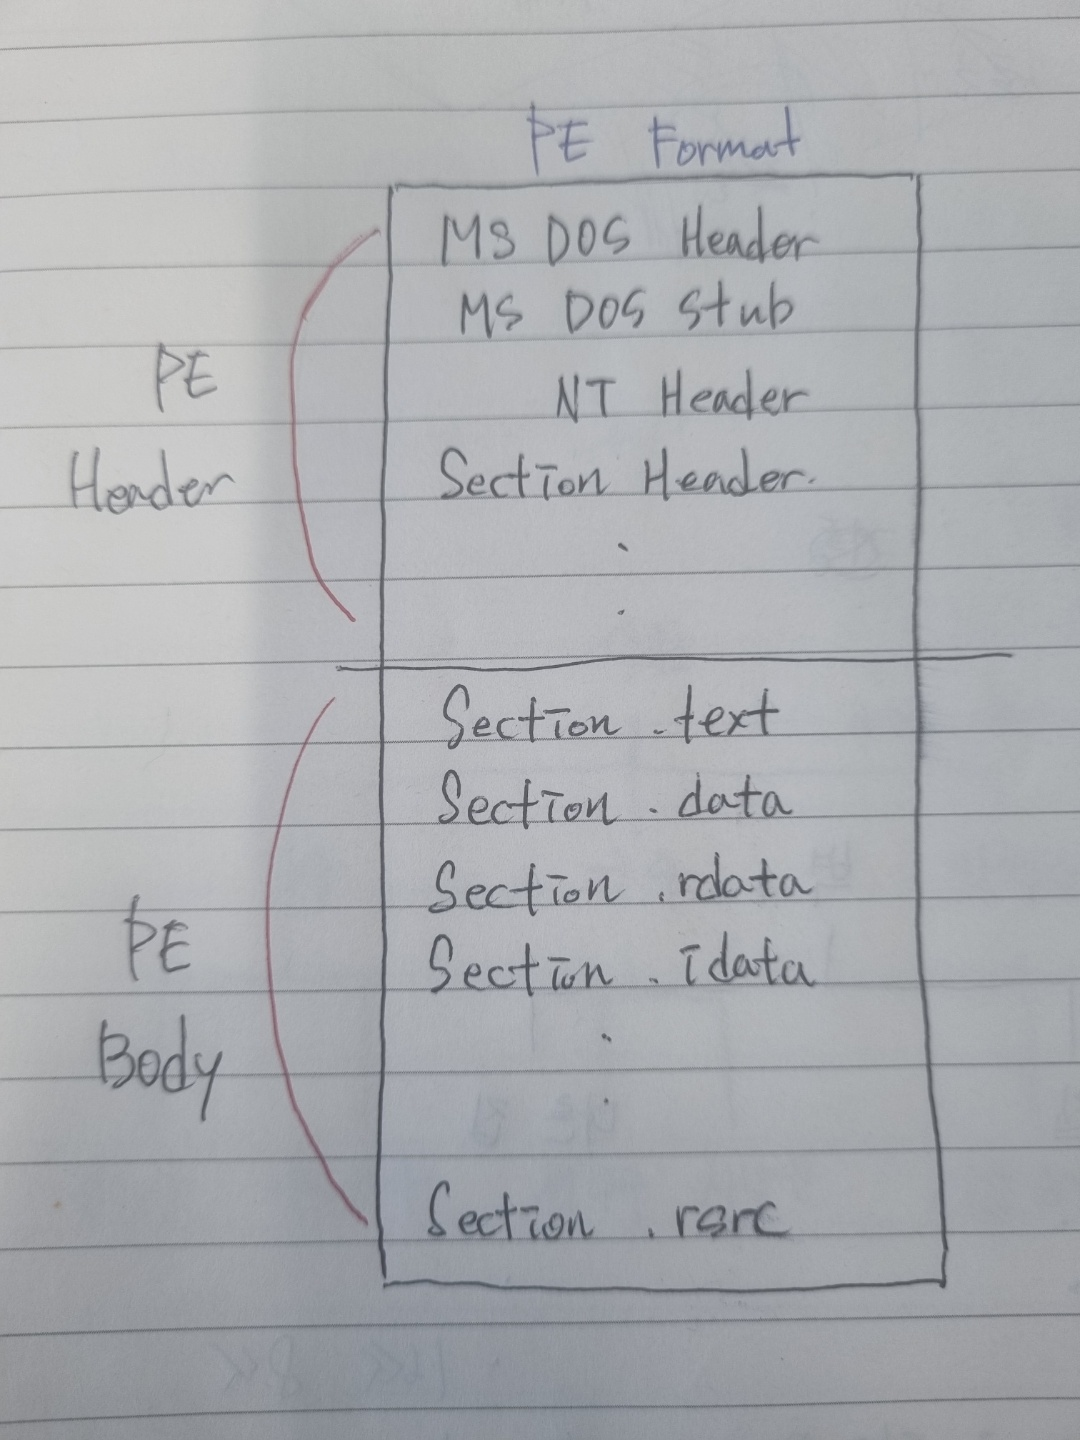 PE Format
MS DOS Header
MS DOS Stub
NT Header
Section Header.
.
.
PE
Header
Section .text
Section .data
Section .rdata
Section .idata
.
.
Section .rsrc
PE
Body